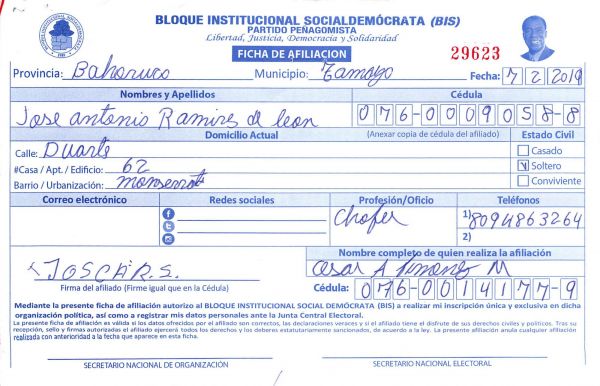 BLOQUE INSTITUCIONAL SOCIALDEMÓCRATA (BIS)
PARTIDO PEÑAGOMISTA
Libertad, Justicia, Democracia y Solidaridad
FICHA DE AFILIACION
29623
Provincia: Bahoruco Municipio: Tamayo Fecha: 7/2/2019
Nombres y Apellidos Cédula
Jose antonio Ramires de leon 076-0009058-8
Domicilio Actual (Anexar copia de cédula del afiliado) Estado Civil
Calle: Duarte Casado
#Casa / Apt. / Edificio: 62 Soltero
Barrio / Urbanización: monserrate Conviviente
Correo electrónico Redes sociales Profesión/Oficio Teléfonos
Chofer 1) 8094863264
2)
Nombre completo de quien realiza la afiliación
JOSCAR.S. Cesar A Jimenez M
Firma del afiliado (Firme igual que en la Cédula) Cédula: 076-0014177-9
Mediante la presente ficha de afiliación autorizo al BLOQUE INSTITUCIONAL SOCIAL DEMÓCRATA (BIS) a realizar mi inscripción única y exclusiva en dicha
organización política, así como a registrar mis datos personales ante la Junta Central Electoral.
La presente ficha de afiliación es válida si los datos ofrecidos por el afiliado son correctos, las declaraciones veraces y si el afiliado tiene el disfrute de sus derechos civiles y políticos. Tras su
recepción, sello y firmas autorizadas el afiliado ejercerá todos los derechos y los deberes estatutariamente sancionados, de acuerdo a la ley. La presente afiliación anula cualquier afiliación
realizada con anterioridad a la fecha que aparece en esta ficha.
SECRETARIO NACIONAL DE ORGANIZACIÓN SECRETARIO NACIONAL ELECTORAL